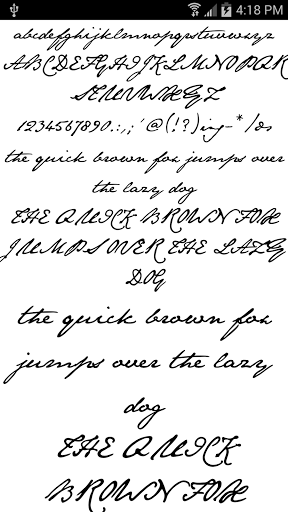 4:18 PM
abcdefghijklmnopqrstuvwxyz
ABCDEFGHIJKLMNOPQR
STUVWXYZ
1234567890.:,;'"@(!?)ing-*/ds
the quick brown fox jumps over
the lazy dog
THE QUICK BROWN FOX
JUMPS OVER THE LAZY
DOG
the quick brown fox
jumps over the lazy
dog
THE QUICK
BROWN FOX